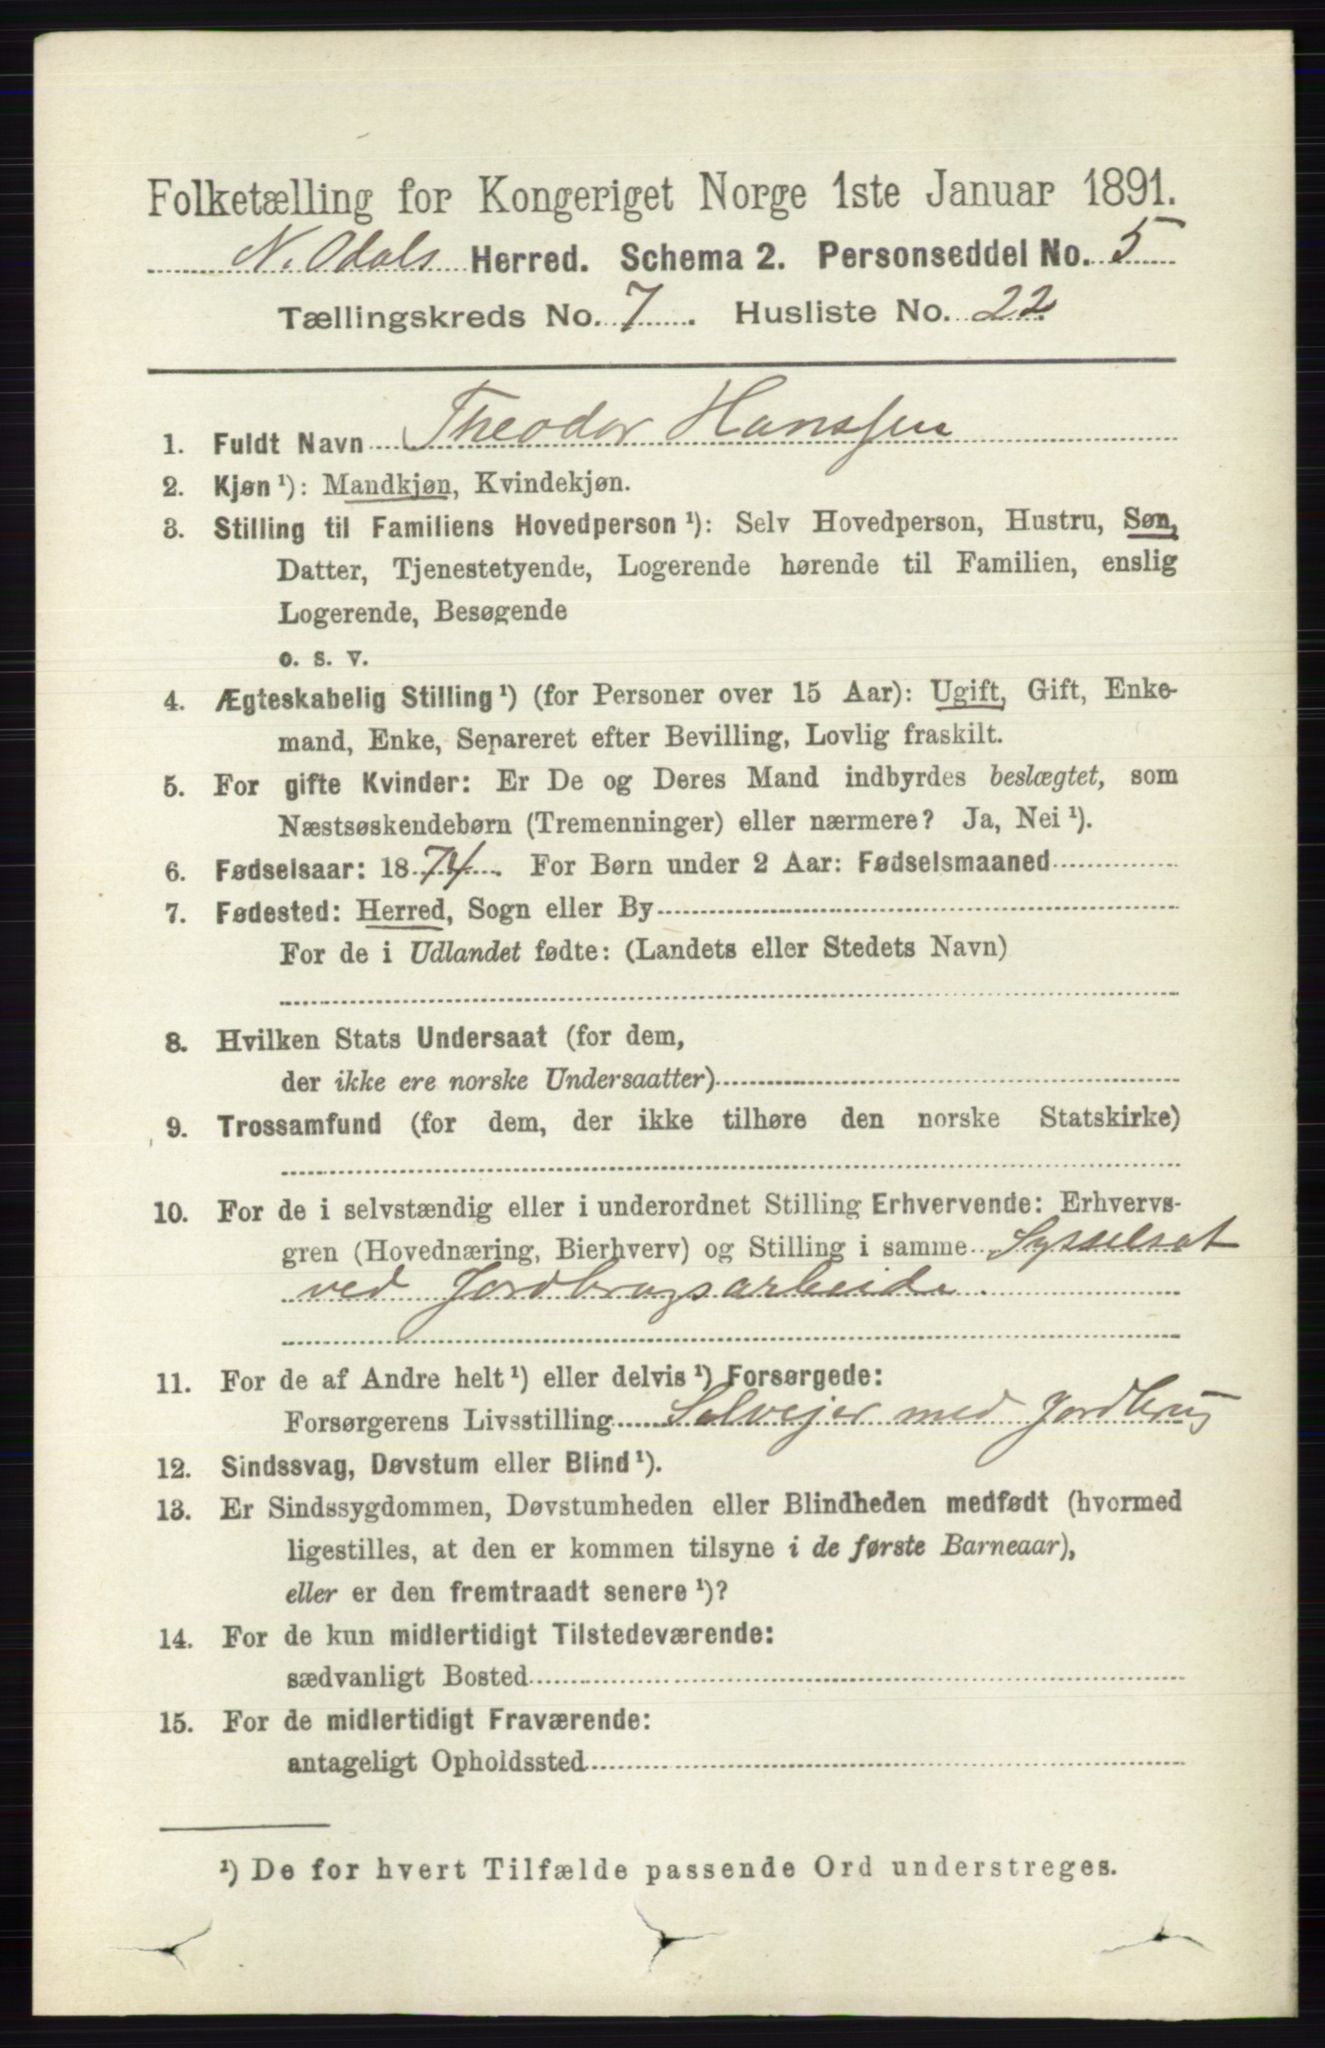 Folketælling for Kongeriget Norge 1ste Januar 1891.
N. Odals Herred. Schema 2. Personseddel No. 5
Tællingskreds No. 7. Husliste No. 22
1. Fuldt Navn Theodor Hanssen
2. Kjøn ¹): Mandkjøn, Kvindekjøn.
3. Stilling til Familiens Hovedperson ¹): Selv Hovedperson, Hustru, Søn,
Datter, Tjenestetyende, Logerende hørende til Familien, enslig
Logerende, Besøgende
o. s. v.
4. Ægteskabelig Stilling ¹) (for Personer over 15 Aar): Ugift, Gift, Enke-
mand, Enke, Separeret efter Bevilling, Lovlig fraskilt.
5. For gifte Kvinder: Er De og Deres Mand indbyrdes beslægtet, som
Næstsøskendebørn (Tremenninger) eller nærmere? Ja, Nei ¹).
6. Fødselsaar: 1874. For Børn under 2 Aar: Fødselsmaaned
7. Fødested: Herred, Sogn eller By
For de i Udlandet fødte: (Landets eller Stedets Navn)
8. Hvilken Stats Undersaat (for dem,
der ikke ere norske Undersaatter)
9. Trossamfund (for dem, der ikke tilhøre den norske Statskirke)
10. For de i selvstændig eller i underordnet Stilling Erhvervende: Erhvervs-
gren (Hovednæring, Bierhverv) og Stilling i samme Sysselsat
ved Jordbrugsarbeide.
11. For de af Andre helt ¹) eller delvis ¹) Forsørgede:
Forsørgerens Livsstilling Selvejer med Jordbrug
12. Sindssvag, Døvstum eller Blind ¹).
13. Er Sindssygdommen, Døvstumheden eller Blindheden medfødt (hvormed
ligestilles, at den er kommen tilsyne i de første Barneaar),
eller er den fremtraadt senere ¹)?
14. For de kun midlertidigt Tilstedeværende:
sædvanligt Bosted
15. For de midlertidigt Fraværende:
antageligt Opholdssted
¹) De for hvert Tilfælde passende Ord understreges.